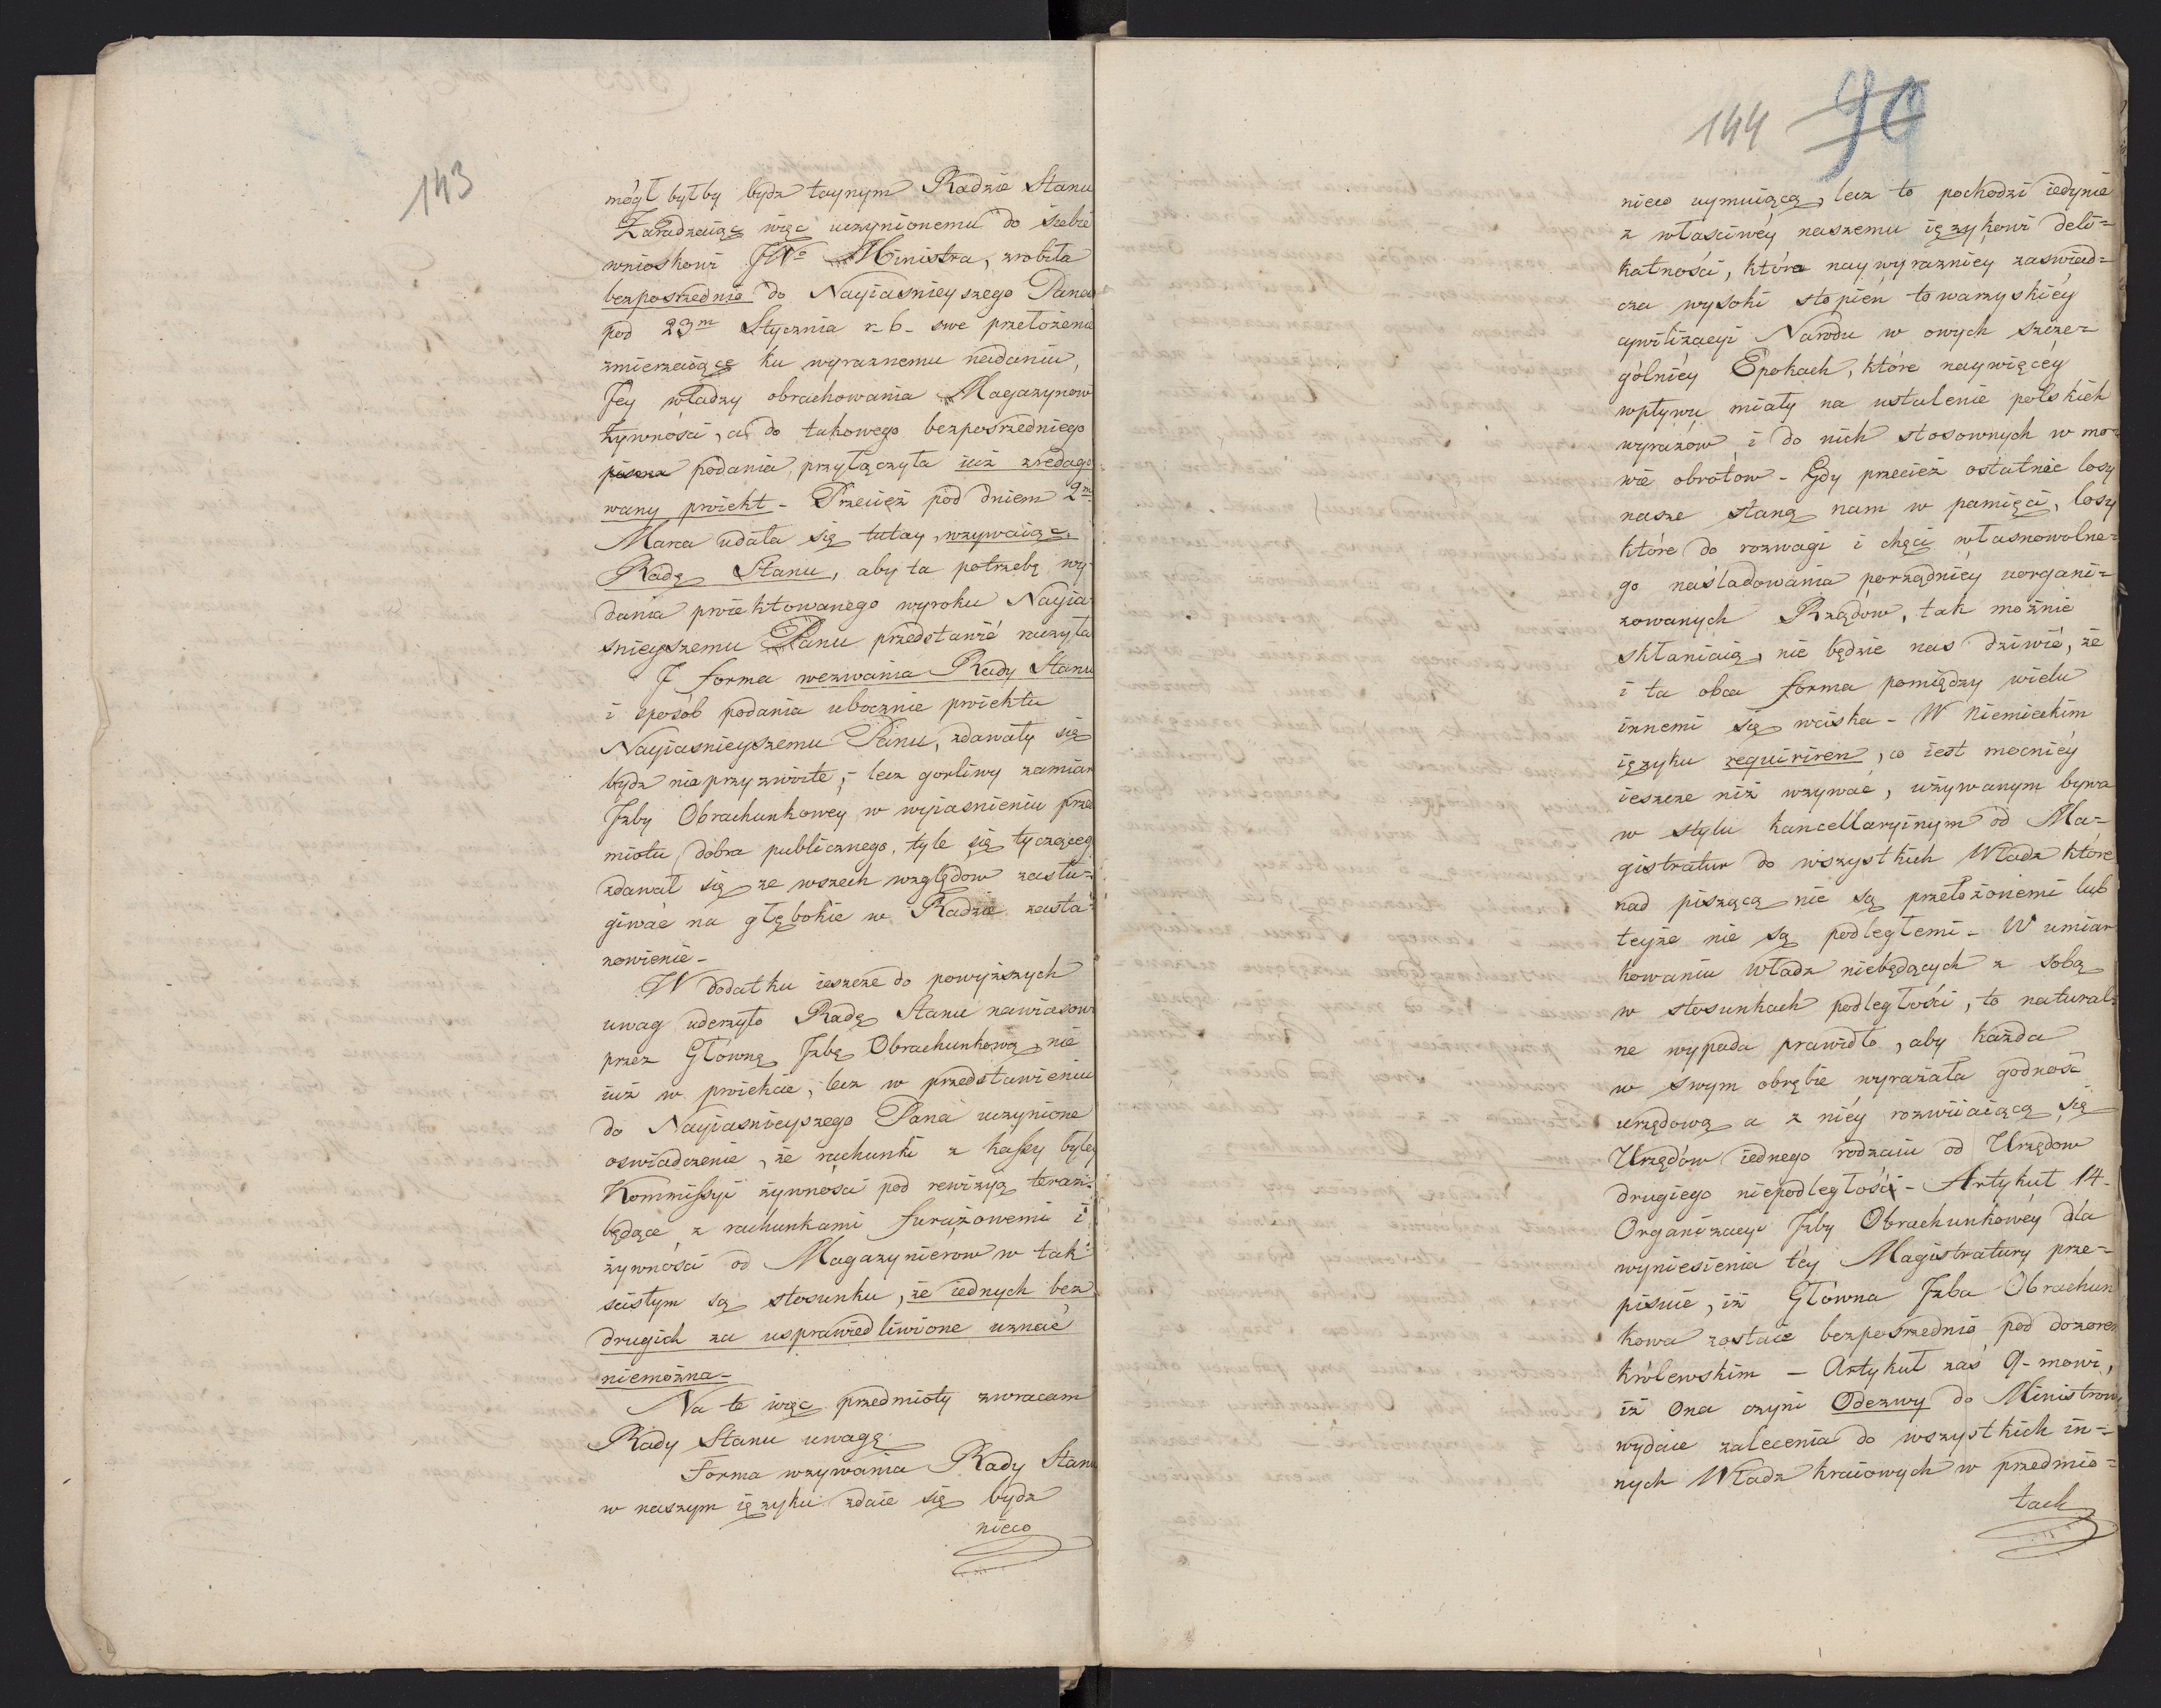 143
mógł byłby bydź taynym Radzie Stanu
Zaradzaiąc więc uczynionemu do siebie
wnioskowi JW° Ministra, zrobiła
bezposrzednio do Nayiasnieyszego Pana
pod 23m Stycznia r. b. swe przełożenie
zmierzaiące ku wyraznemu nadaniu,
Jey władzy obrachowania Magazynow
Żywności, a do takowego bezpośrzedniego
podania przyłączyła iuż zredago
wany proiekt - Przecięż pod dniem 2m
Marca udała się tutay, wzywaiąc
Radę Stanu, aby ta potrzebę wy
dania proiektowanego wyroku Nayia
śnieyszemu Panu przedstawić raczyła
J forma wezwania Rady Stanu
i sposob podania ubocznie proiektu
Nayiasnieyszemu Panu, zdawały się
bydz nieprzyzwoite; lecz gorliwy zamiar
Jzby Obrachunkowey w wyiasnieniu prze
miotu dobra publicznego, tyle się tyczącego
zdawał się ze wszech względow zasłu-
giwać na głębokie w Radzie zasta-
nowienie -
W dodatku ieszcze do powyższych
uwag uderzyło Radę Stanu nawiasowo
przez Główną Jzbę Obrachunkową nie
iuż w proiekcie, lecz w przedstawieniu
do Nayiasnieyszego Pana uczynione
oswiadczenie, że rachunki z kassy byłey
Kommissyi żywnosci pod rewizyą teraz
będące, z rachunkami furażowemi i
żywności od Magazynierow w tak
scisłym są stosunku, że iednych bez
drugich za usprawiedliwione uznać
niemożna -
Na te więc przedmioty zwracam
Rady Stanu uwagę
Forma wzywania Rady Stanu
w naszym ięzyku zdaie się bydz
nieco
144 90
nieco uymuiącą, lecz to pochodzi iedynie
z właściwey naszemu ięzykowi deli-
katności, która naywyrazniey zaswiad-
cza wysoki stopień towarzyskiéy
cywilizacyi Narodu w owych szcze-
gólniéy Epokach, które naywięcéy
wpływu miały na ustalenie polskich
wyrazów i do nich stosownych w mo-
wie obrotow - Gdy przecież ostatnie losy
nasze staną nam w pamięci, losy
które do rozwagi i chęci własnowolne-
go naśladowania porządniéy uorgani-
zowanych Rządów, tak możnie
skłaniaią, nie będzie nas dziwić, że
i ta obca forma pomiędzy wielu
innemi się wciska - W Niemieckim
ięzyku requiriren, co iest mocniéy
ieszcze niż wzywać, używanym bywa
w stylu kancellaryinym od Ma-
gistratur do wszystkich Władz które
nad piszącą nie są przełożonemi lub
teyże nie są podległemi - W umiar
kowaniu Władz niebędących z sobą
w stosunkach podległości, to natural-
ne wypada prawidło, aby każda
w swym obrębie wyrażała godność
urzędową a z niéy rozwiiaiącą się
Urzędów iednego rodzaiu od Urzędow
drugiego niepodległość - Artykuł 14-
Organizacyi Jzby Obrachunkowéy dla
wyniesienia téy Magistratury prze-
pisuie, iż Głowna Jzba Obrachun
kowa zostaie bezpośrzednio pod dozorem
królewskim - Artykuł zaś 9- mowi,
iż Ona czyni Odezwy do Ministrow,
wydaie zalecenia do wszystkich in-
nych Władz kraiowych w przedmio-
tach